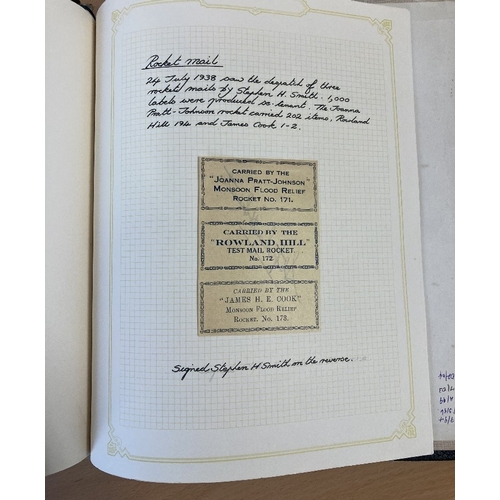 Rocket Mail
24 July 1938 saw the despatch of three
rocket mails by Stephen H. Smith. 1,000
labels were produced se-tenant. The Joanna
Pratt-Johnson rocket carried 202 items, Rowland
Hill 194 and James Cook 1-2.
CARRIED BY THE
"JOANNA PRATT-JOHNSON"
MONSOON FLOOD RELIEF
ROCKET NO. 171.
CARRIED BY THE
"ROWLAND HILL"
TEST MAIL ROCKET.
No. 172
CARRIED BY THE
"JAMES H. E. COOK"
MONSOON FLOOD RELIEF
ROCKET. No. 173.
Signed Stephen H Smith on the reverse.